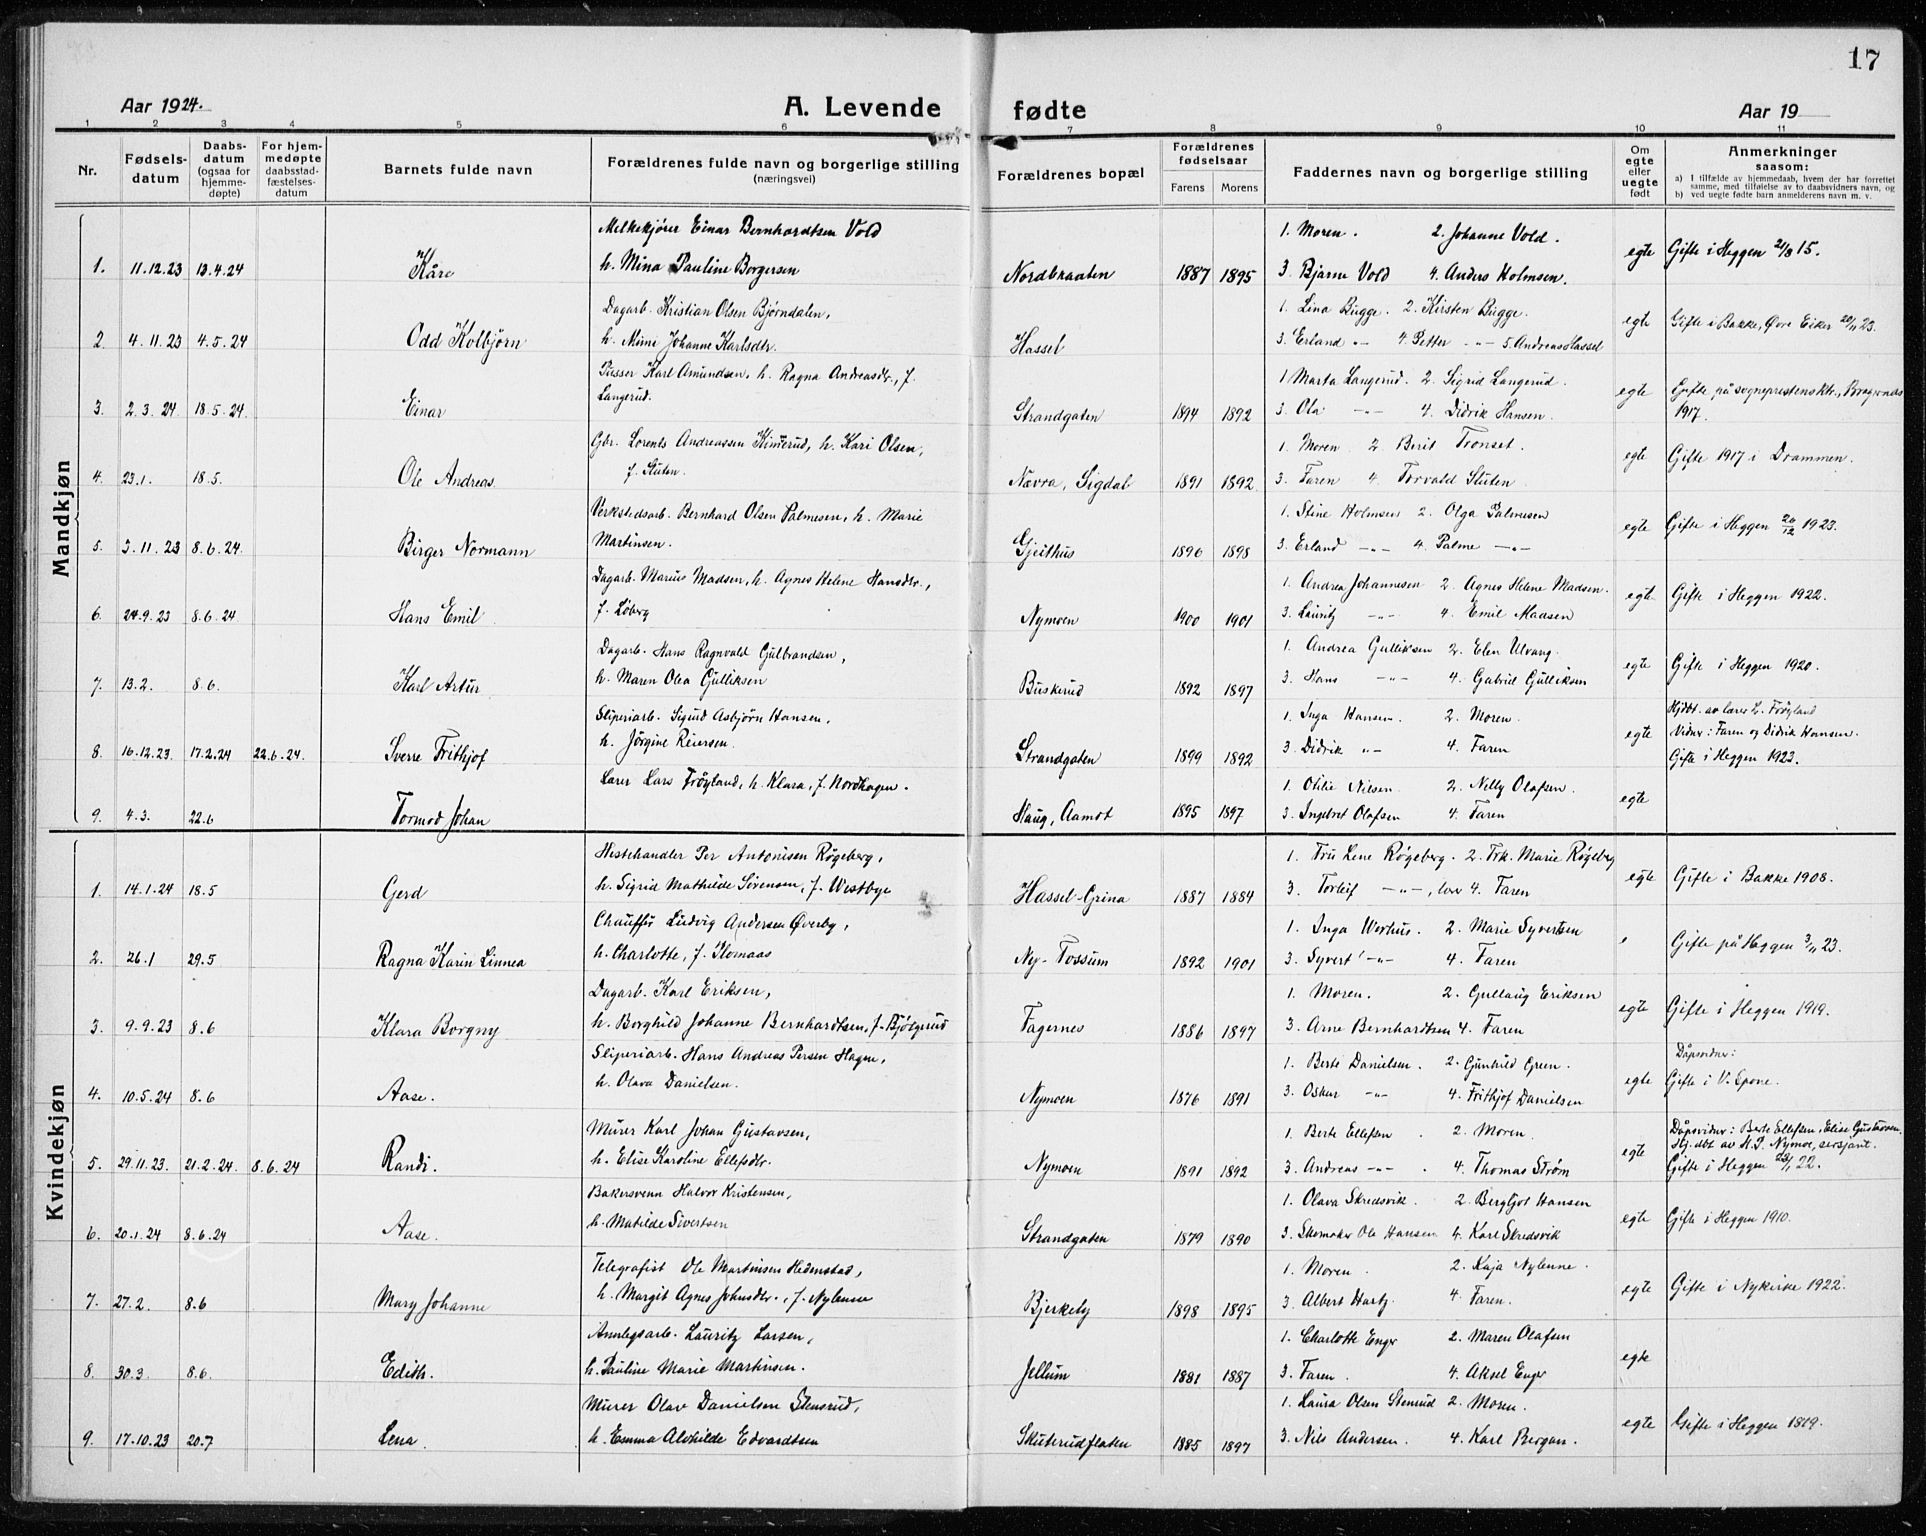 17
Aar 1924. A. Levende fødte Aar 19
1 2 3 4 5 6 7 8 9 10 11
Nr. Fødsels-datum Daabs-datum (ogsaa for hjemme-døpte) For hjem-medøpte daabsstad-fæstelses-datum Barnets fulde navn Forældrenes fulde navn og borgerlige stilling (næringsvei) Forældrenes bopæl Forældrenes fødselsaar Farens Morens Faddernes navn og borgerlige stilling Om egte eller uegte født Anmerkninger saasom:
a) I tilfælde av hjemmedaab, hvem der har forrettet samme, med tilføielse av to daabsvidners navn, og
b) ved uegte fødte barn anmelderens navn m. v.
Mandkjøn
Melkekjører Einar Bernhardtsen Vold 1. Moren. 2. Johanne Vold.
1. 11.12.23 13.4.24 Kåre h. Mina Pauline Borgersen Nordbraaten 1887 1895 3. Bjarne Vold 4. Anders Holmsen. egte Gifte i Heggen 21/8 15.
Dagarb. Kristian Olsen Bjørndalen, 1. Lina Bugge. 2. Kirsten Bugge.
2. 4.11.23 4.5.24 Odd Kolbjørn h. Mimi Johanne Karlsdtr. Hassel 3. Erland -"- 4. Petter -"- 5. Andreas Hassel egte Gifte i Bakke, Øvre Eiker 20/11 23.
Pusser Karl Amundsen, h. Ragna Andreasdr., f. 1. Marta Langerud. 2. Sigrid Langerud.
3. 2.3.24 18.5.24 Einar Langerud. Strandgaten 1894 1892 3. Ola -"- 4. Didrik Hansen. egte Gifte på sogneprestens ktr., Bragernes 1917.
Gbr. Lorents Andreassen Kimerud, h. Kari Olsen, 1. Moren 2. Berit Tronset.
4. 23.1. 18.5. Ole Andreas f. Sluten. Nævra, Sigdal 1891 1892. 3. Faren 4. Torvald Sluten. egte Gifte 1917 i Drammen.
Verkstedsarb. Bernhard Olsen Palmesen, h. Marie 1. Stine Holmsen 2. Olga Palmesen
5. 3.11.23 8.6.24. Birger Normann Martinsen. Gjeithus 1896 1898 3. Erland -"- 4. Palme -"- egte Gifte i Heggen 26/12 1923.
Dagarb. Marius Madsen, h. Agnes Helene Hansdtr., 1. Andrea Johannesen 2. Agnes Helene Madsen.
6. 24.9.23 8.6.24 Hans Emil f. Løberg Nymoen 1900 1901 3. Lauritz -"- 4. Emil Madsen egte Gifte i Heggen 1922.
Dagarb. Hans Ragnvald Gulbrandsen, 1. Andrea Gulliksen 2. Elen Ulvang.
7. 13.2. 8.6. Karl Artur h. Maren Olea Gulliksen Buskerud 1892 1897 3. Hans -"- 4. Gabriel Gulliksen egte Gifte i Heggen 1920.
Sliperiarb. Sigurd Asbjørn Hansen, 1. Inga Hansen. 2. Moren. Hjdbt. av lærer L. Frøyland
8. 16.12.23 17.2.24 22.6.24. Sverre Frithjof h. Jørgine Reiersen. Strandgaten 1899 1892 3. Didrik "- 4. Faren egte Vidner: Faren og Didrik Hansen. Gifte i Heggen 1923.
Lærer Lars Frøyland, h. Klara, f. Nordhagen. 1. Othilie Nilsen. 2. Nelly Olafsen.
9. 4.3. 22.6 Tormod Johan Haug, Aamot 1895 1897 3. Ingebret Olafsen 4. Faren egte
Kvindekjøn
Hestehandler Per Antonisen Røgeberg, 1. Fru Lene Røgeberg. 2. Frk. Marie Røgeberg
1. 14.1.24 18.5 Gerd h. Sigrid Mathilde Sørensen, f. Westbye Hassel-Grina 1887 1884 3. Torleif -"-, 4. Faren egte Gifte i Bakke 1908.
Chauffør Ludvig Andersen Øverby, 1. Inga Werhus. 2. Marie Syvertsen
2. 26.1 29.5 Ragna Karin Linnea h. Charlotte, f. Flomaas Ny-Fossum 1892 1901 3. Syvert -"- 4. Faren Gifte på Heggen 3/11 23.
Dagarb. Karl Eriksen, 1. Moren. 2. Gullaug Eriksen
3. 9.9.23 8.6 Klara Borgny h. Borghild Johanne Bernhardtsen, f. Bjølgerud Fagernes 1886 1897 3. Arne Bernhardtsen 4. Faren egte Gifte i Heggen 1919.
Sliperiarb. Hans Andreas Persen Hagen, 1. Berte Danielsen. 2. Gunhild Green. Dåpsvidner:
4. 10.5.24 8.6 Aase. h. Olava Danielsen. Nymoen 1876 1891 3. Oskar -"- 4. Frithjof Danielsen egte Gifte i V. Spone.
Murer Karl Johan Gustavsen, 1. Berte Ellefsen. 2. Moren. Dåpsvidner: Berte Ellefsen, Elise Gustavsen.
5. 29.11.23. 21.2.24. 8.6.24 Randi. h. Elise Karoline Ellefsdtr. Nymoen 1891 1892 3. Andreas -"-. 4. Thomas Strøm egte Hj.dbt av H. P. Nymoe, sersjant. Gifte i Heggen 28/1 22.
Bakersvenn Halvor Kristensen, 1. Olava Skredsvik. 2. Bergljot Hansen
6. 20.1.24 8.6.24 Aase. h. Matilde Sivertsen Strandgaten 1879 1890 3. Skomaker Ole Hansen 4. Karl Skredsvik egte Gifte i Heggen 1910.
Telegrafist Ole Martinsen Hedenstad, 1. Moren. 2. Kaja Nylenne.
7. 27.2. 8.6 Mary Johanne h. Margit Agnes Johnsdtr., f. Nylenne Bjerkely 1898 1895 3. Albert Hartz 4. Faren. egte Gifte i Nykirke 1922.
Anlegsarb. Lauritz Larsen, 1. Charlotte Enger 2. Maren Olafsen
8. 30.3 8.6. Edith. h. Pauline Marie Martinsen. Jellum 1881 1887 3. Faren. 4. Aksel Enger egte
Murer Olav Danielsen Stensrud, 1. Laura Olsen Stenrud 2. Moren.
9. 17.10.23 20.7 Lena. h. Emma Alvhilde Edvardtsen Skuterudflaten 1885 1897 3. Nils Andersen. 4. Karl Bergan. egte Gifte i Heggen 1819.